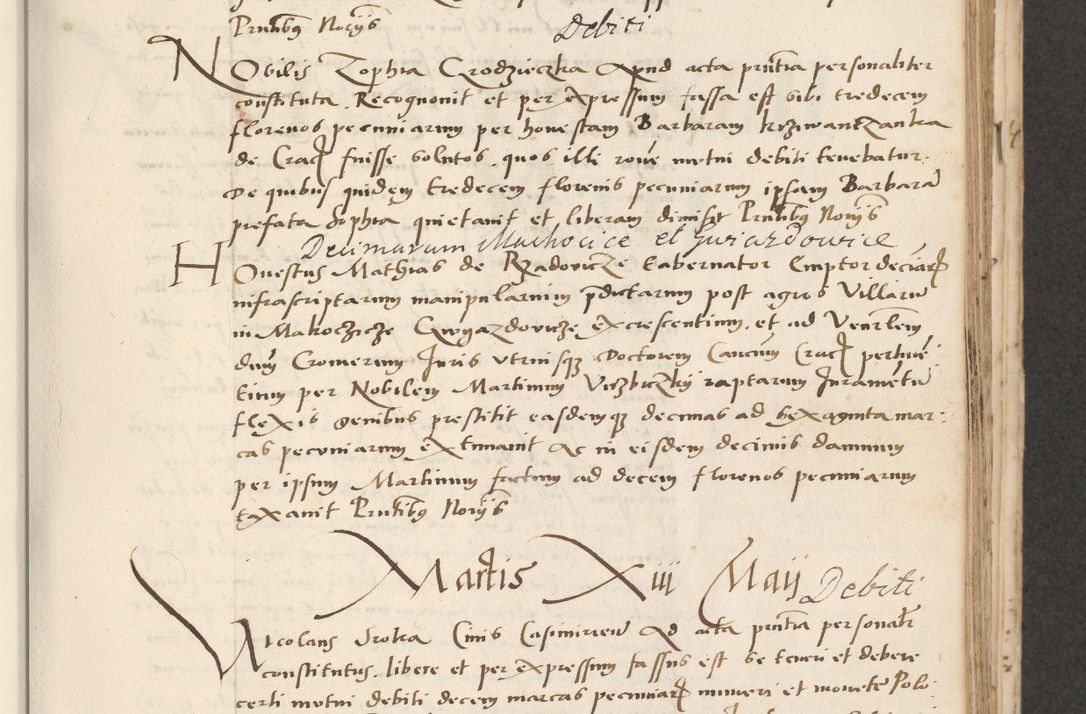 Prntibus Noriis
Debiti
Nobilis Zophia Grodzieczka Apud acta prntia personaliter
constituta. Recognouit et per expressum fassa est sibi tredecem
florenos pecuniarum per honestam Barbaram krziwantzanka
de Crac fuisse solutos, quos illi roue mutui debiti tenebatur.
De quibus quidem tredecem florenis pecuniarum ipsam Barbara
prefata Sophia quietauit et liberam dimisit Prntibus Noriis
Decimarum Machocice et Gwiazdowice
Honestus Mathias de Rzadovicze tabernator Emptor deciar
infrascriptarum manipularium pdictarum post agros Villaru
in Makoczicze Gwyazdovicze excrescentium, et ad Venrlem
dnm Cromerum Juris vtriusque Doctorem Cancum Crac pertine
tium per Nobilem Martinum Viczbiczky raptarum Jurametu
flexis genibus prestitit easdemque decimas ad sexaginta mar:
cas pecuniarum extimauit Ac in eisdem decimis damnum
per ipsum Martinum factum ad decem florenos pecuniarum
taxauit Prntibus Noriis
Martis Xiii Maij
Debiti
Nicolaus Srotka Ciuis Casimirien Ad acta prntia personalr
constitutus, libere et per expressum fassus est se teneri et debere
certi mutui debiti decem marcas pecuniar numeri et monete Polo